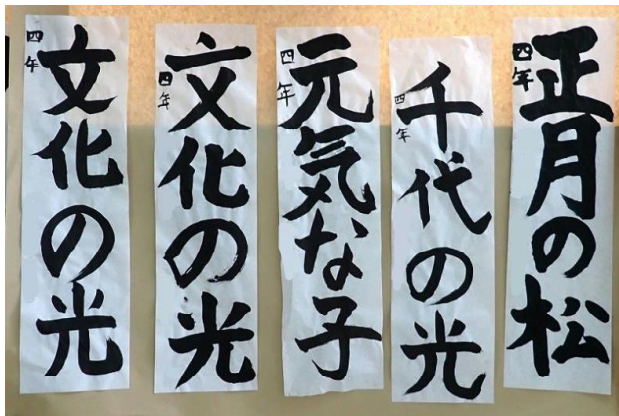 正月の松
四年
千代の光
四年
元気な子
四年
文化の光
四年
文化の光
四年